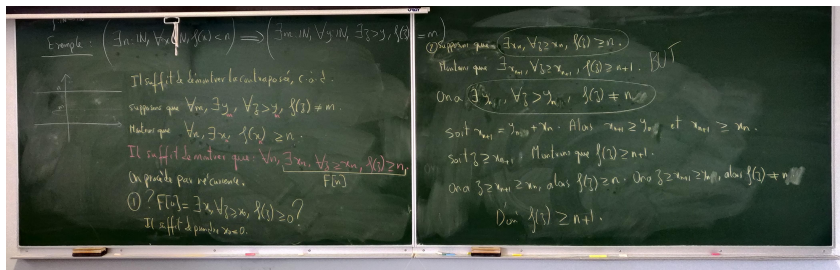 Exemple. (∃n:ℕ, ∀x:ℕ, f(x) < n) ⟹ (∃m:ℕ, ∀y:ℕ, ∃z>y, f(z) = m)
Il suffit de démontrer la contraposée, c.à.d.
supposons que ∀m, ∃y_m, ∀z>y_m, f(z) ≠ m.
Montrons que ∀n, ∃x, f(x) ≥ n.
Il suffit de montrer que: ∀n, ∃x_n, ∀z≥x_n, f(z)≥n.
F[n]
On procède par récurrence.
① ? F[0] = ∃x, ∀z≥x, f(z)≥0 ?
Il suffit de prendre x_0=0.
② supposons que ∃x_n, ∀z≥x_n, f(z)≥n.
Montrons que ∃x_{n+1}, ∀z≥x_{n+1}, f(z)≥n+1. BUT
On a ∃y_n, ∀z>y_n, f(z) ≠ n
soit x_{n+1} = y_n + x_n. Alors x_{n+1} ≥ y_n et x_{n+1} ≥ x_n.
soit z≥x_{n+1}. Montrons que f(z)≥n+1.
On a z≥x_{n+1}≥x_n, alors f(z)≥n. On a z≥x_{n+1}≥y_n, alors f(z)≠n
D'où f(z) ≥ n+1.